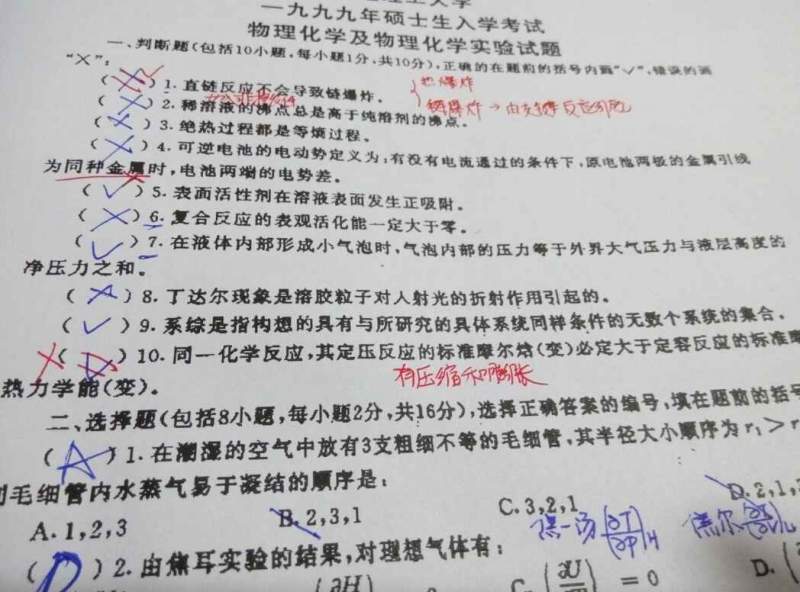 一九九九年硕士生入学考试
物理化学及物理化学实验试题
一、判断题(包括10小题,每小题1分,共10分),正确的在题前的括号内画“✓”,错误的画
“×”:
热爆炸
( × ✓ ) 1. 直链反应不会导致链爆炸。
( × ) 2. 稀溶液的沸点总是高于纯溶剂的沸点。
( × ) 3. 绝热过程都是等熵过程。
( × ) 4. 可逆电池的电动势定义为:有没有电流通过的条件下,原电池两极的金属引线
为同种金属时,电池两端的电势差。
( ✓ ) 5. 表面活性剂在溶液表面发生正吸附。
( × ) 6. 复合反应的表观活化能一定大于零。
( ✓ ) 7. 在液体内部形成小气泡时,气泡内部的压力等于外界大气压力与液层高度的
净压力之和。
( × ) 8. 丁达尔现象是溶胶粒子对入射光的折射作用引起的。
( ✓ ) 9. 系综是指构想的具有与所研究的具体系统同样条件的无数个系统的集合。
× ( ) 10. 同一化学反应,其定压反应的标准摩尔焓(变)必定大于定容反应的标准摩
热力学能(变)。
有压缩和膨胀
二、选择题(包括8小题,每小题2分,共16分),选择正确答案的编号,填在题前的括号
( A ) 1. 在潮湿的空气中放有3支粗细不等的毛细管,其半径大小顺序为r₁>r
毛细管内水蒸气易于凝结的顺序是:
A. 1,2,3 B. 2,3,1 C. 3,2,1 D. 2,1,
( D ) 2. 由焦耳实验的结果,对理想气体有:
(∂H C. (∂U = 0 D. (